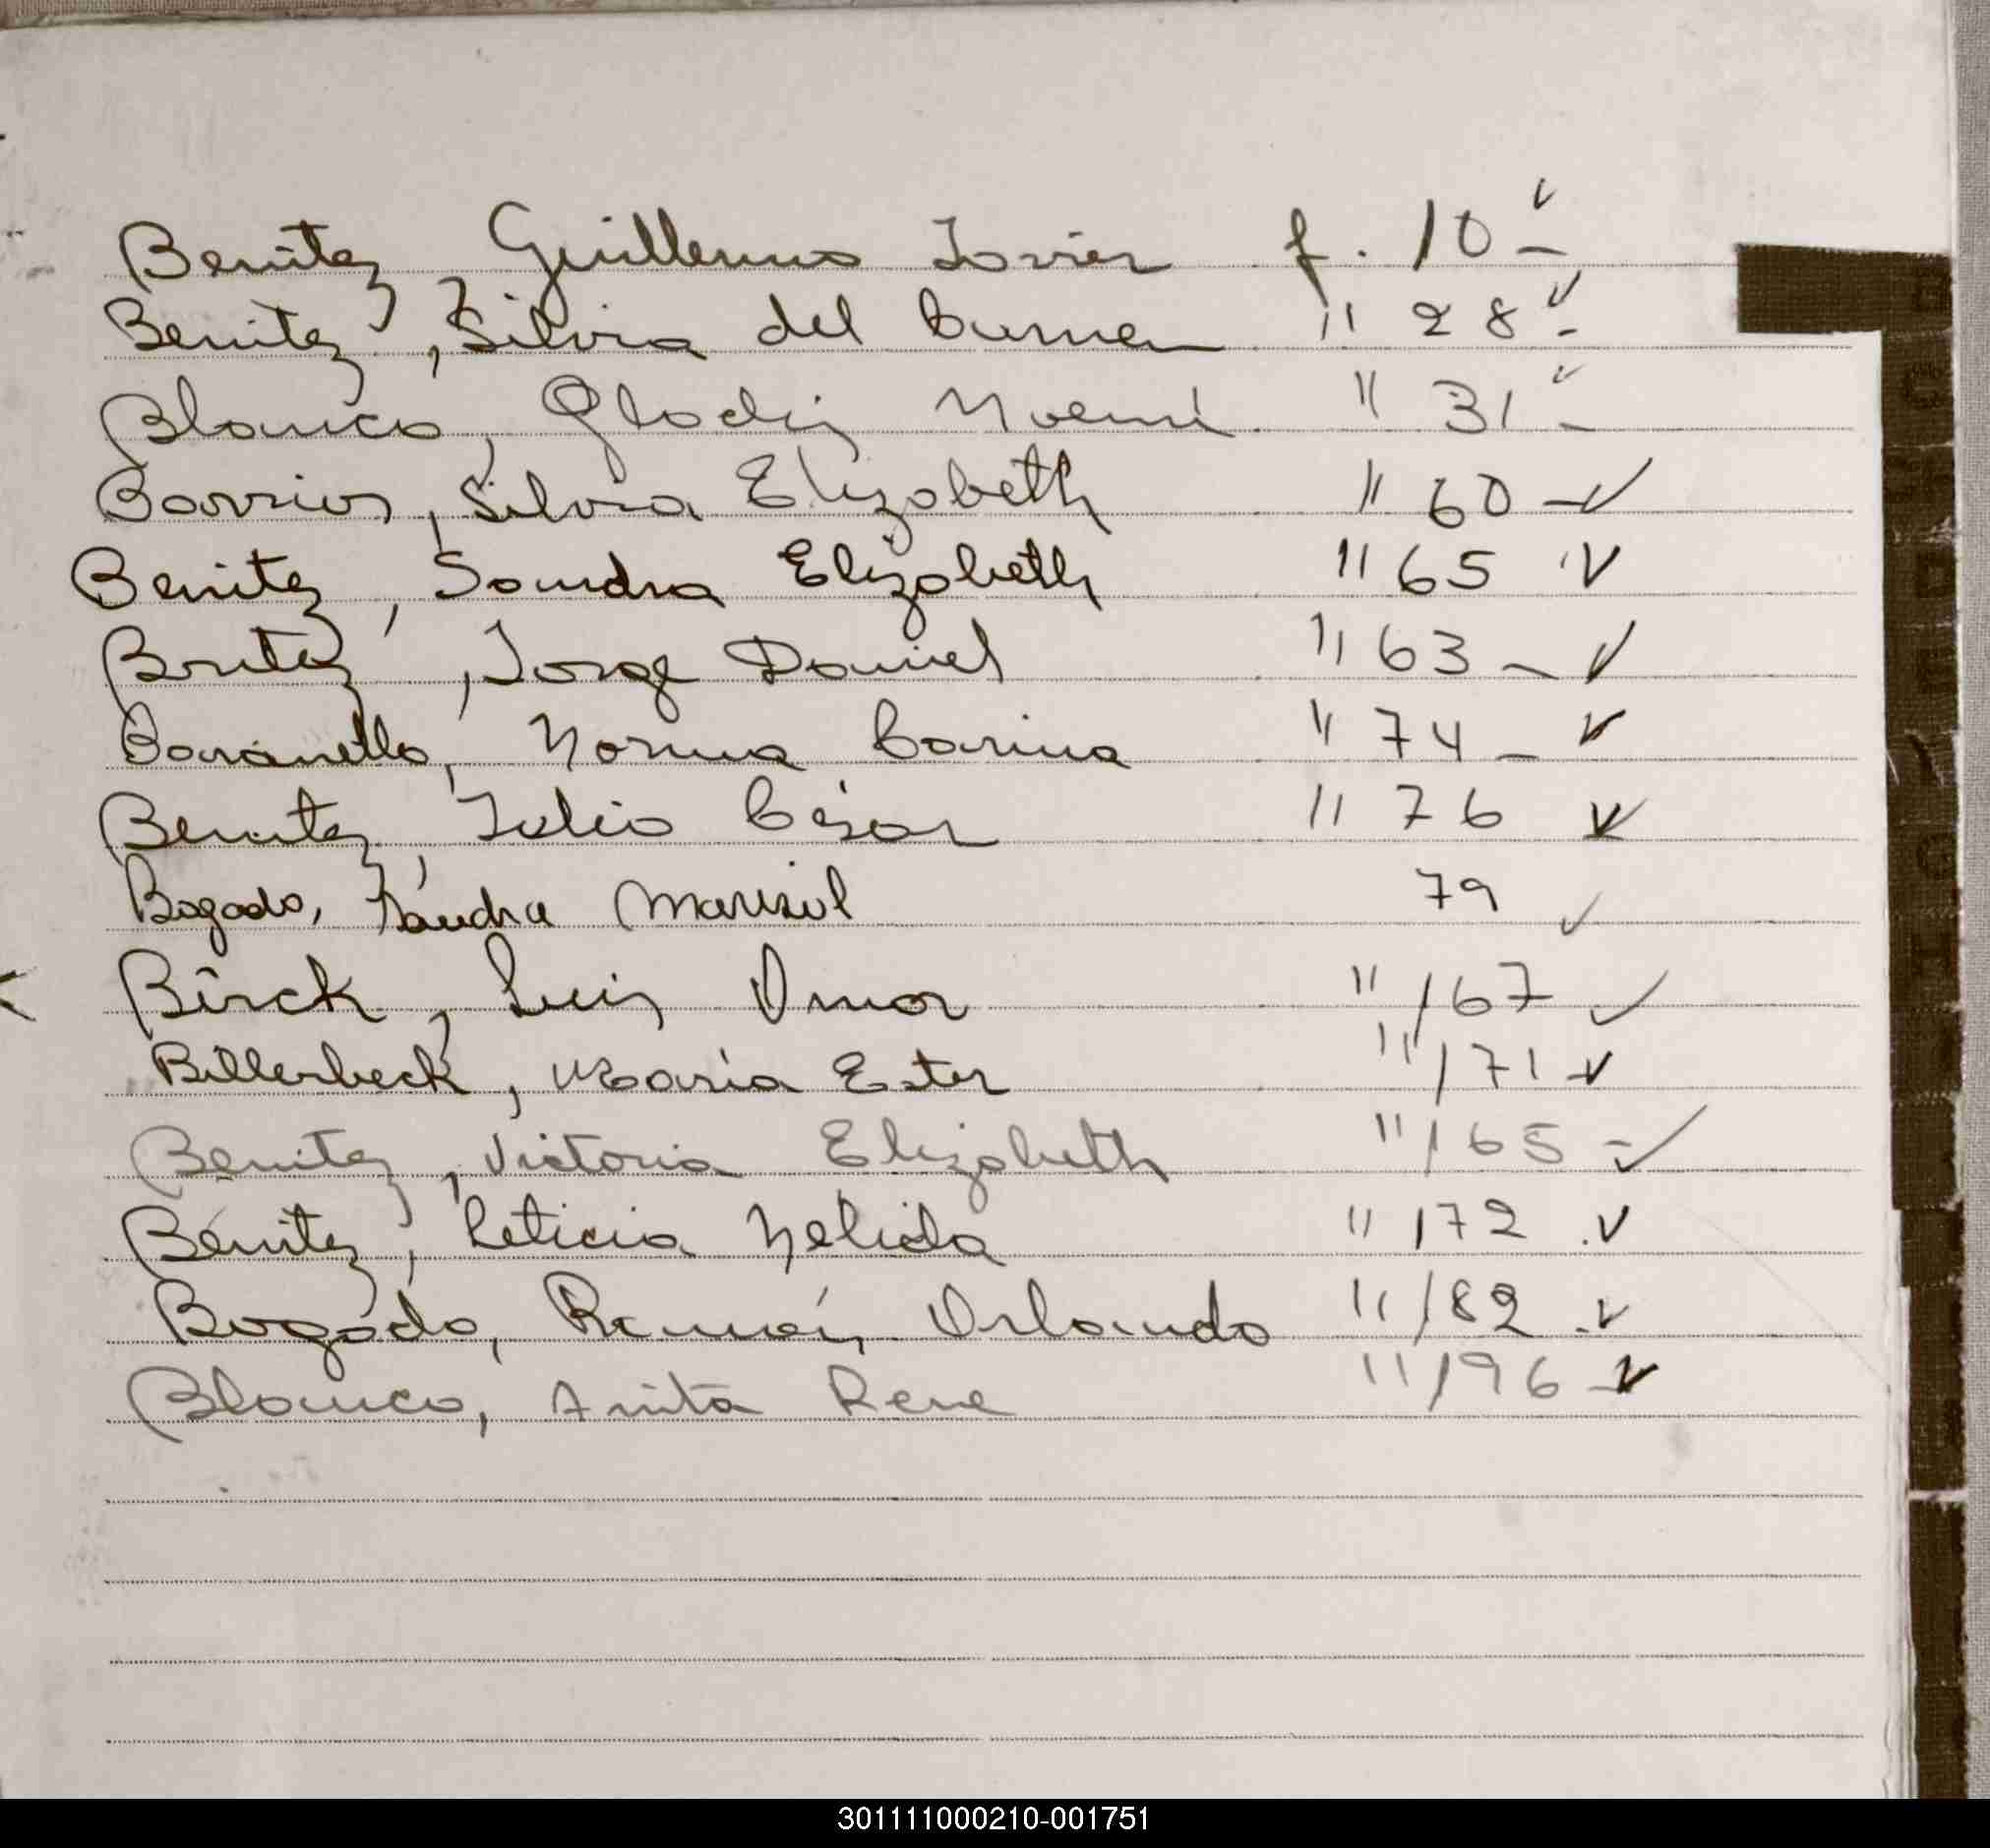 Benitez, Guillermo Javier f. 10 -
Benitez, Silvia del Carmen " 28 -
Blanco, Gladis Noemí " 31 -
Barrios, Silvia Elizabeth " 60 -
Benitez, Sandra Elizabeth " 65
Britez, Jorge Daniel " 63 -
Baranello, Norma Carina " 74 -
Benitez, Julio César " 76
Bogado, Sandra Marisol 79
Birck, Luis Omar " 167
Billerbeck, María Ester " 171
Benitez, Victoria Elizabeth " 165 -
Benitez, Leticia Nelida " 172
Bogado, Ramón Orlando " 182
Blanco, Anita Rene " 196
301111000210-001751